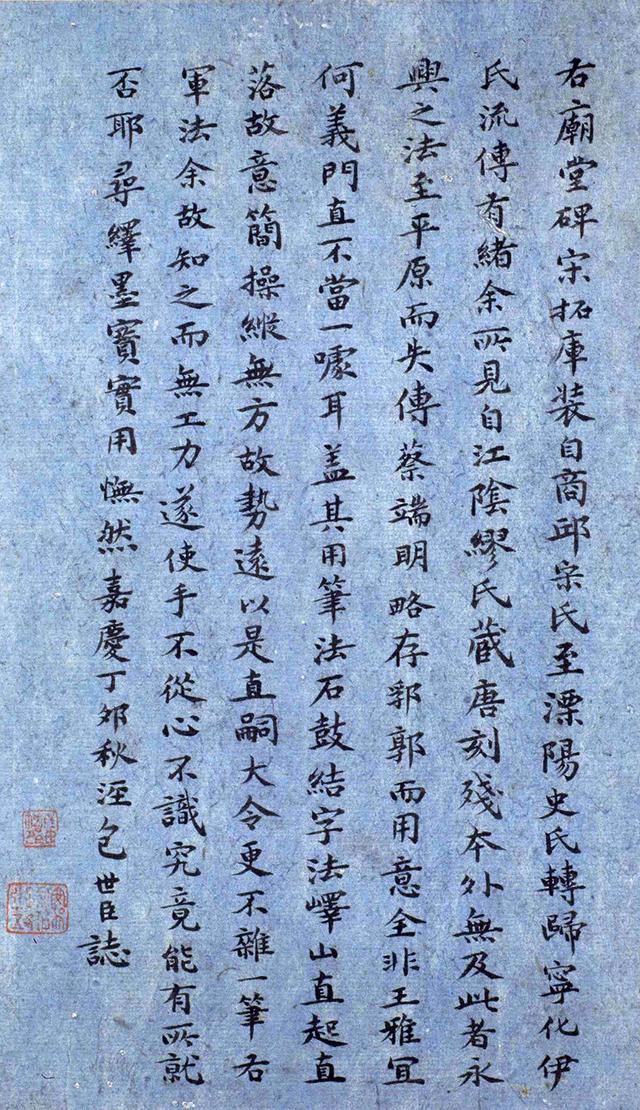 右廟堂碑宋拓庫裝自商邱宋氏至溧陽史氏轉歸寧化伊
氏流傳有緒余所見自江陰繆氏藏唐刻殘本外無及此者永
興之法至平原而失傳蔡端明略存郛郭而用意全非王雅宜
何義門直不當一噱耳盖其用筆法石鼓結字法嶧山直起直
落故意簡操縱無方故勢遠以是直嗣大令更不雜一筆右
軍法余故知之而無工力遂使手不從心不識究竟能有所就
否耶尋繹墨寶實用憮然嘉慶丁卯秋涇包世臣誌